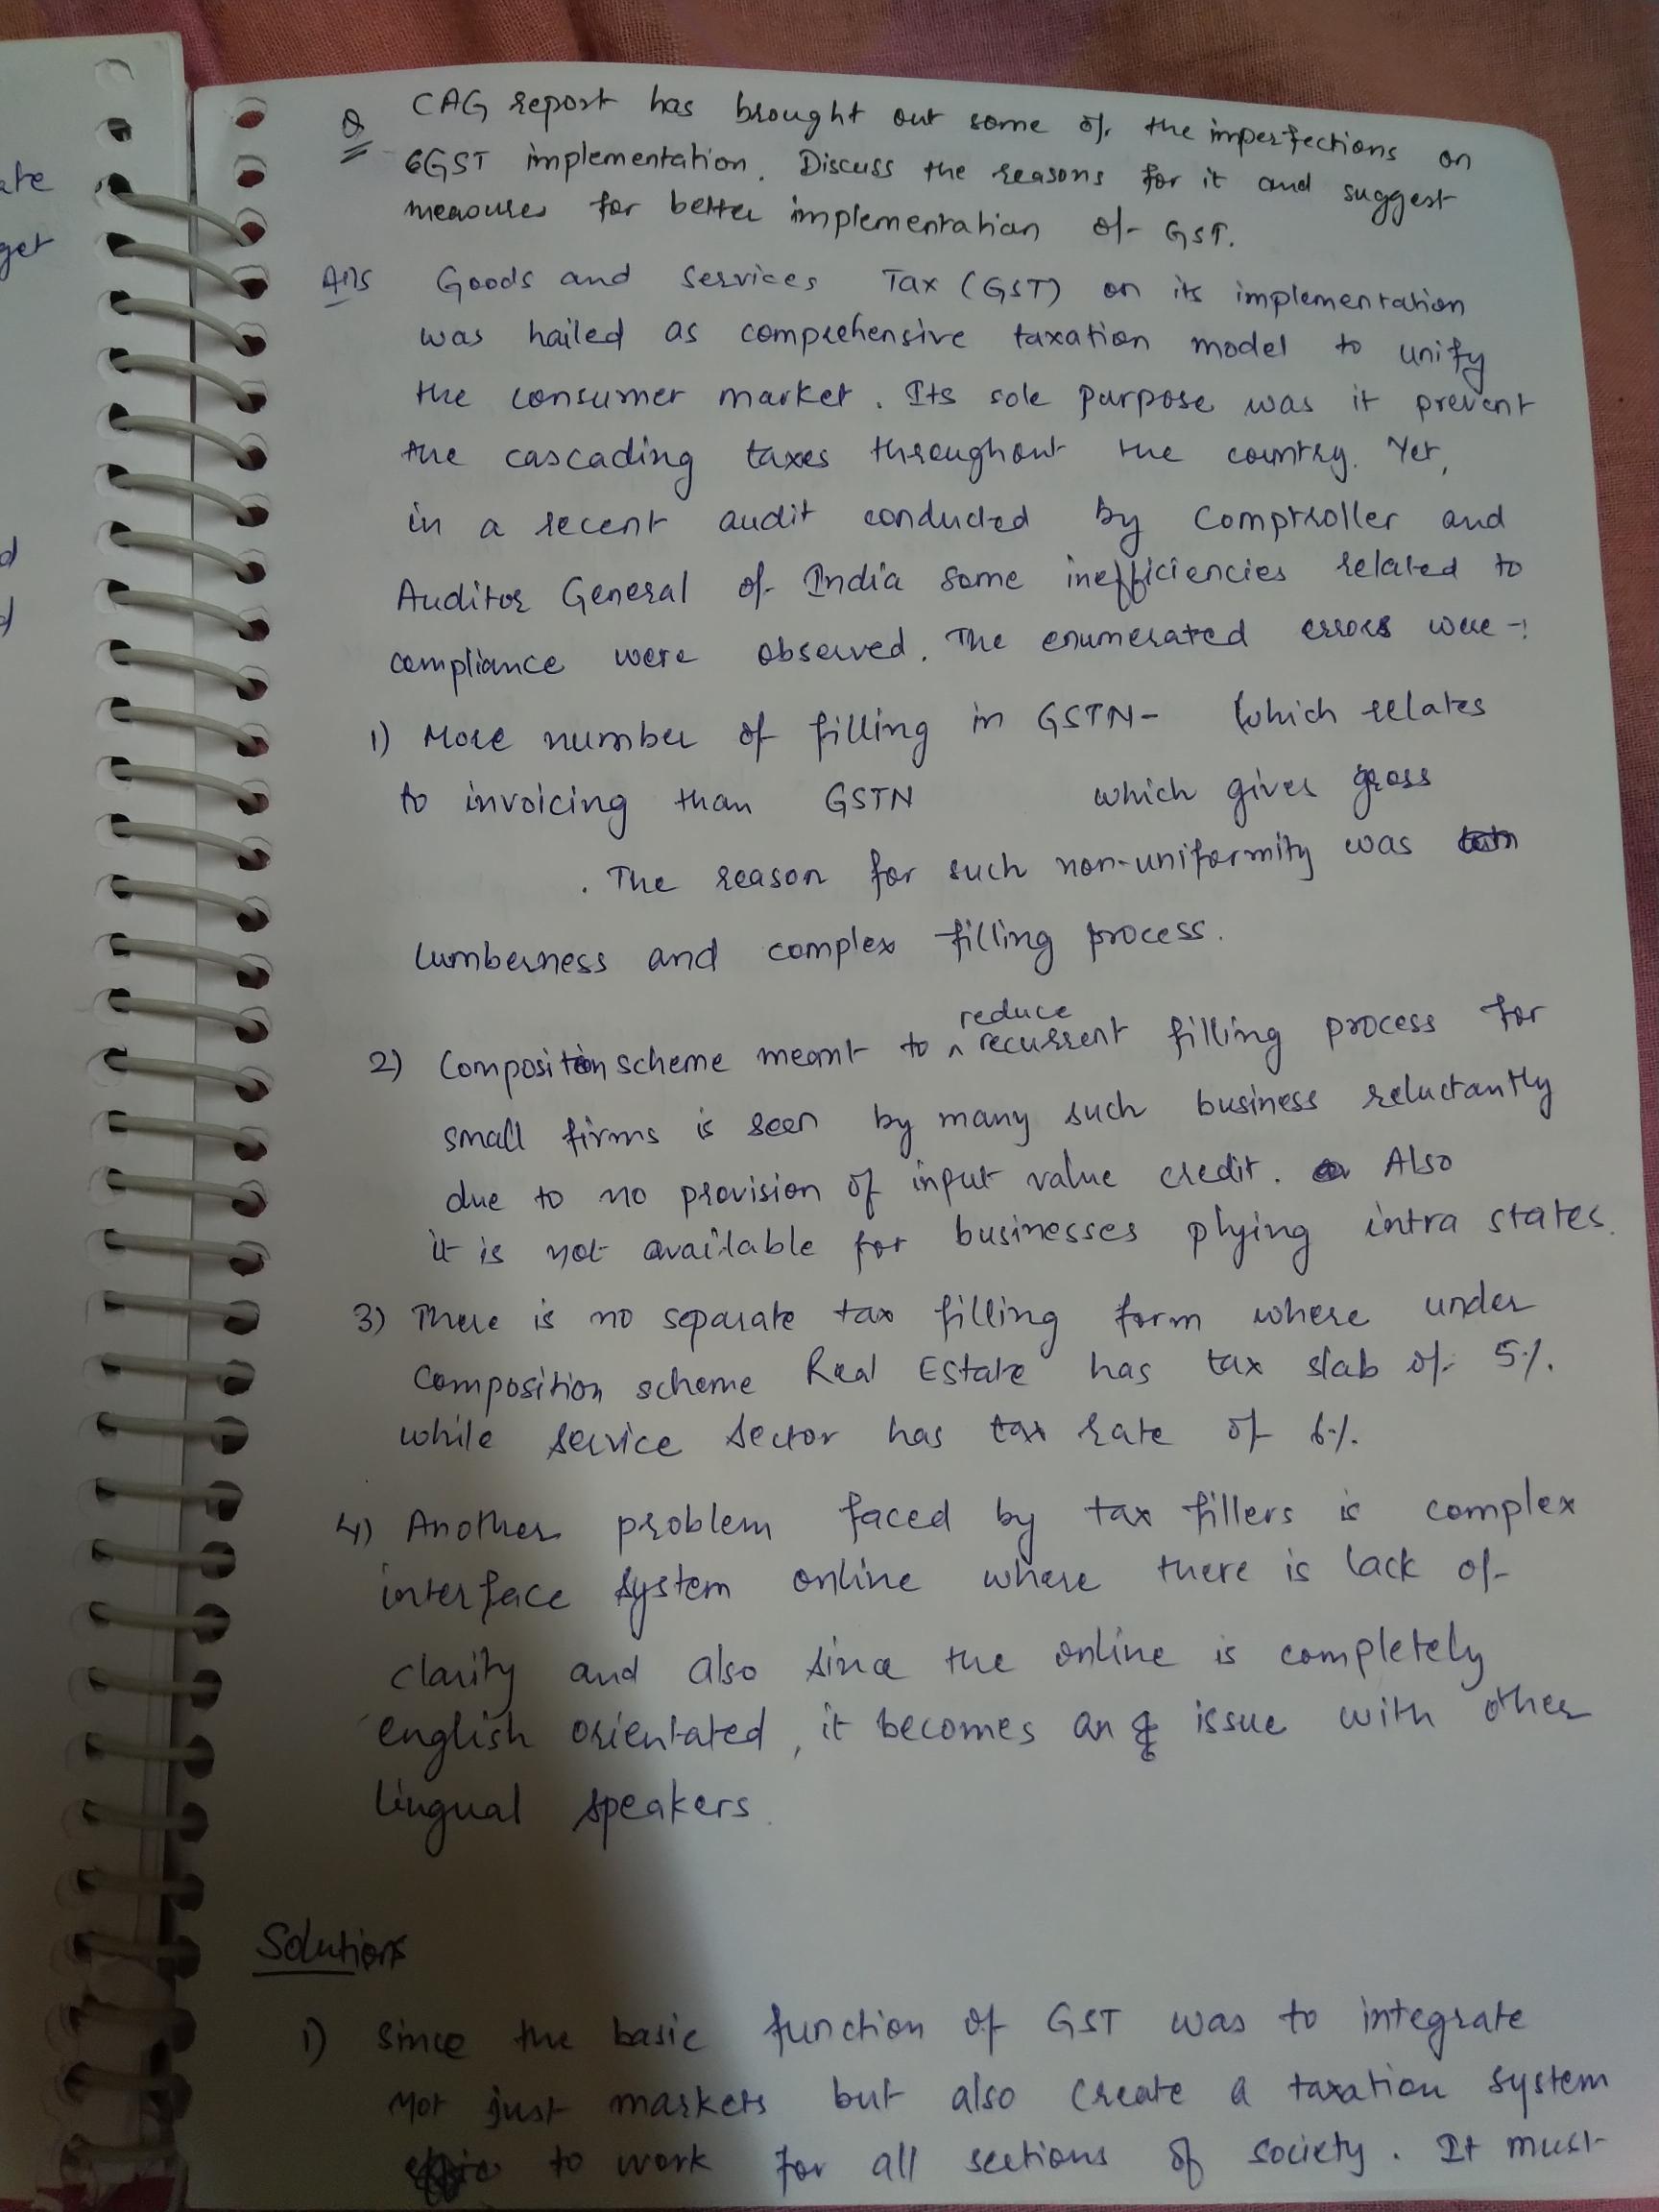 Q CAG report has brought out some of the imperfections on
GST implementation. Discuss the reasons for it and suggest
measures for better implementation of GST.
Ans Goods and Services Tax (GST) on its implementation
was hailed as comprehensive taxation model to unify
the consumer market. Its sole purpose was it prevent
the cascading taxes throughout the country. Yet,
in a recent audit conducted by Comptroller and
Auditor General of India some inefficiencies related to
compliance were observed. The enumerated errors were -:
1) More number of filling in GSTN- which relates
to invoicing than GSTN which gives gross
. The reason for such non-uniformity was
cumberness and complex filling process.
2) Composition scheme meant to reduce recurrent filling process for
small firms is seen by many such business reluctantly
due to no provision of input value credit. Also
it is not available for businesses plying intra states.
3) There is no separate tax filling form where under
composition scheme Real Estate has tax slab of 5%.
while service sector has tax rate of 6%.
4) Another problem faced by tax fillers is complex
interface system online where there is lack of
clarity and also since the online is completely
english orientated, it becomes an issue with other
lingual speakers.
Solutions
1) Since the basic function of GST was to integrate
not just markets but also create a taxation system
to work for all sections of society. It must
ate
get
d
d